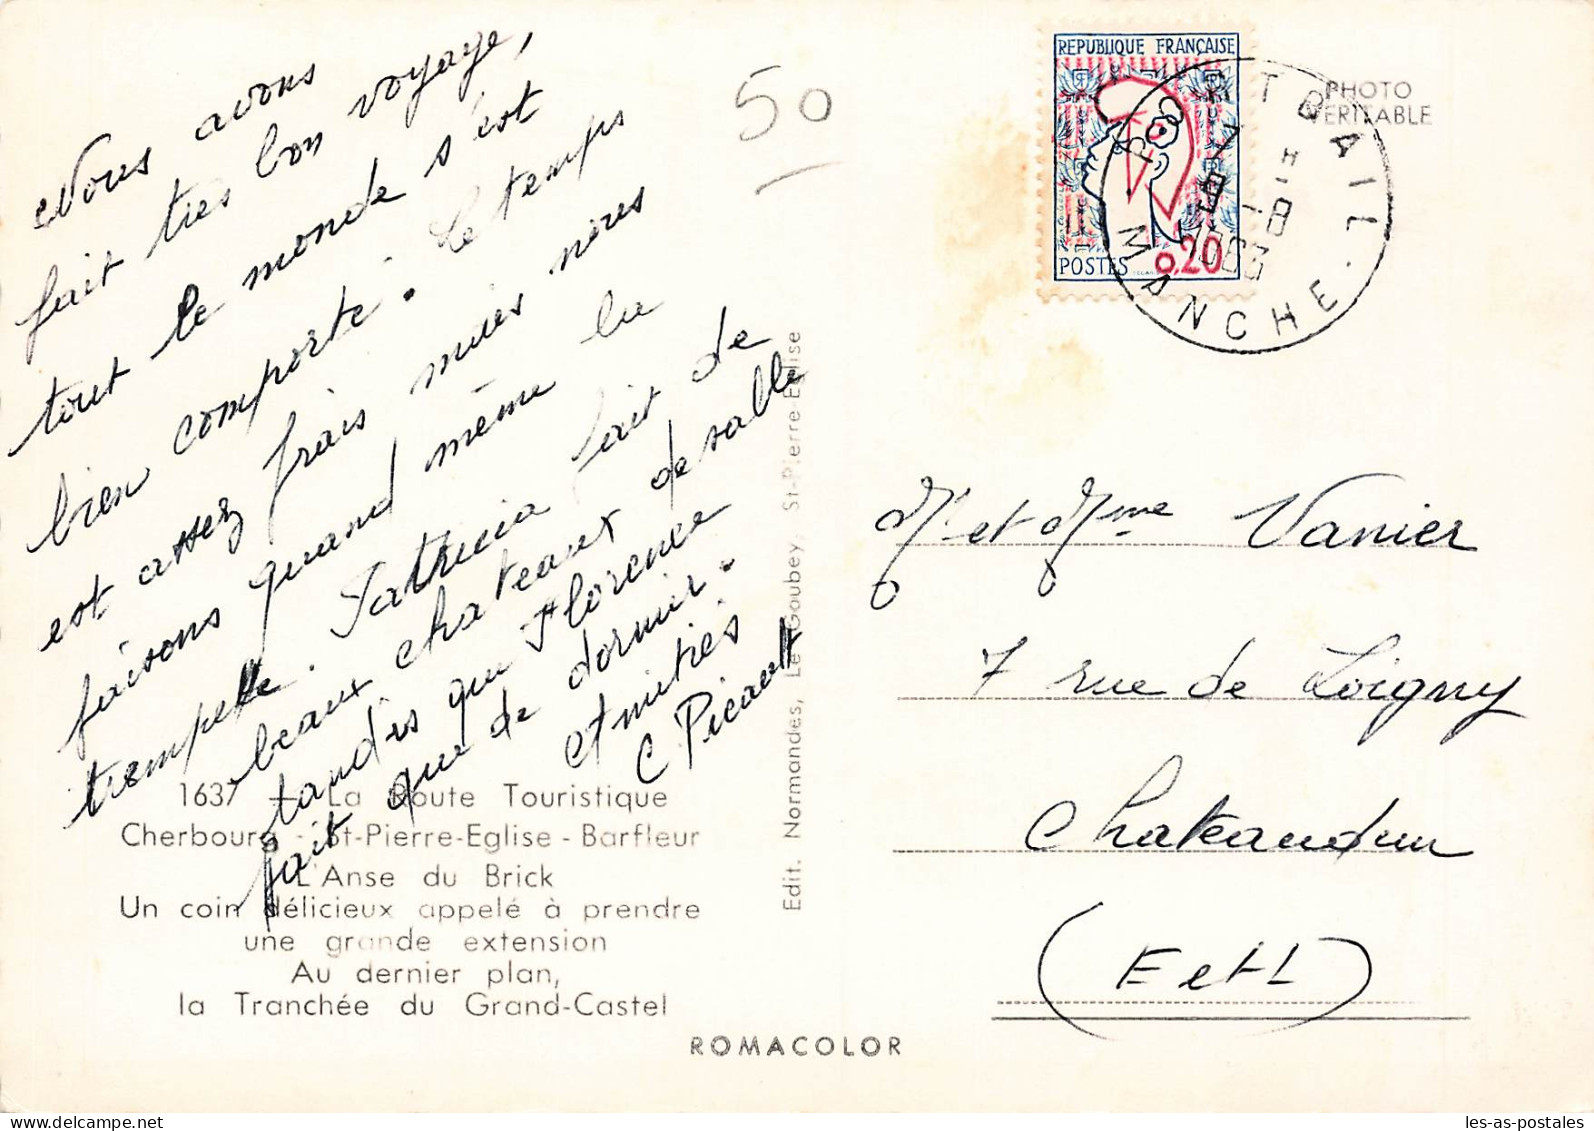 Nous avons
fait très bon voyage,
tout le monde s'est
bien comporté. Le temps
est assez frais mais nous
faisons quand même la
trempette. Patricia fait de
beaux chateaux de sable
tandis que Florence
fait que de dormir.
Amitiés
C Picault
50
REPUBLIQUE FRANÇAISE
POSTES 0,20
PORTBAIL
7 H
8 -8
1963
MANCHE
PHOTO
VERITABLE
Mr et Mme Vanier
7 rue de Loigny
Chateaudun
(E et L)
Edit. Normandes, Le Goubey, St-Pierre-Eglise
1637 - La Route Touristique
Cherbourg - St-Pierre-Eglise - Barfleur
L'Anse du Brick
Un coin délicieux appelé à prendre
une grande extension
Au dernier plan,
la Tranchée du Grand-Castel
ROMACOLOR
les-as-postales.com